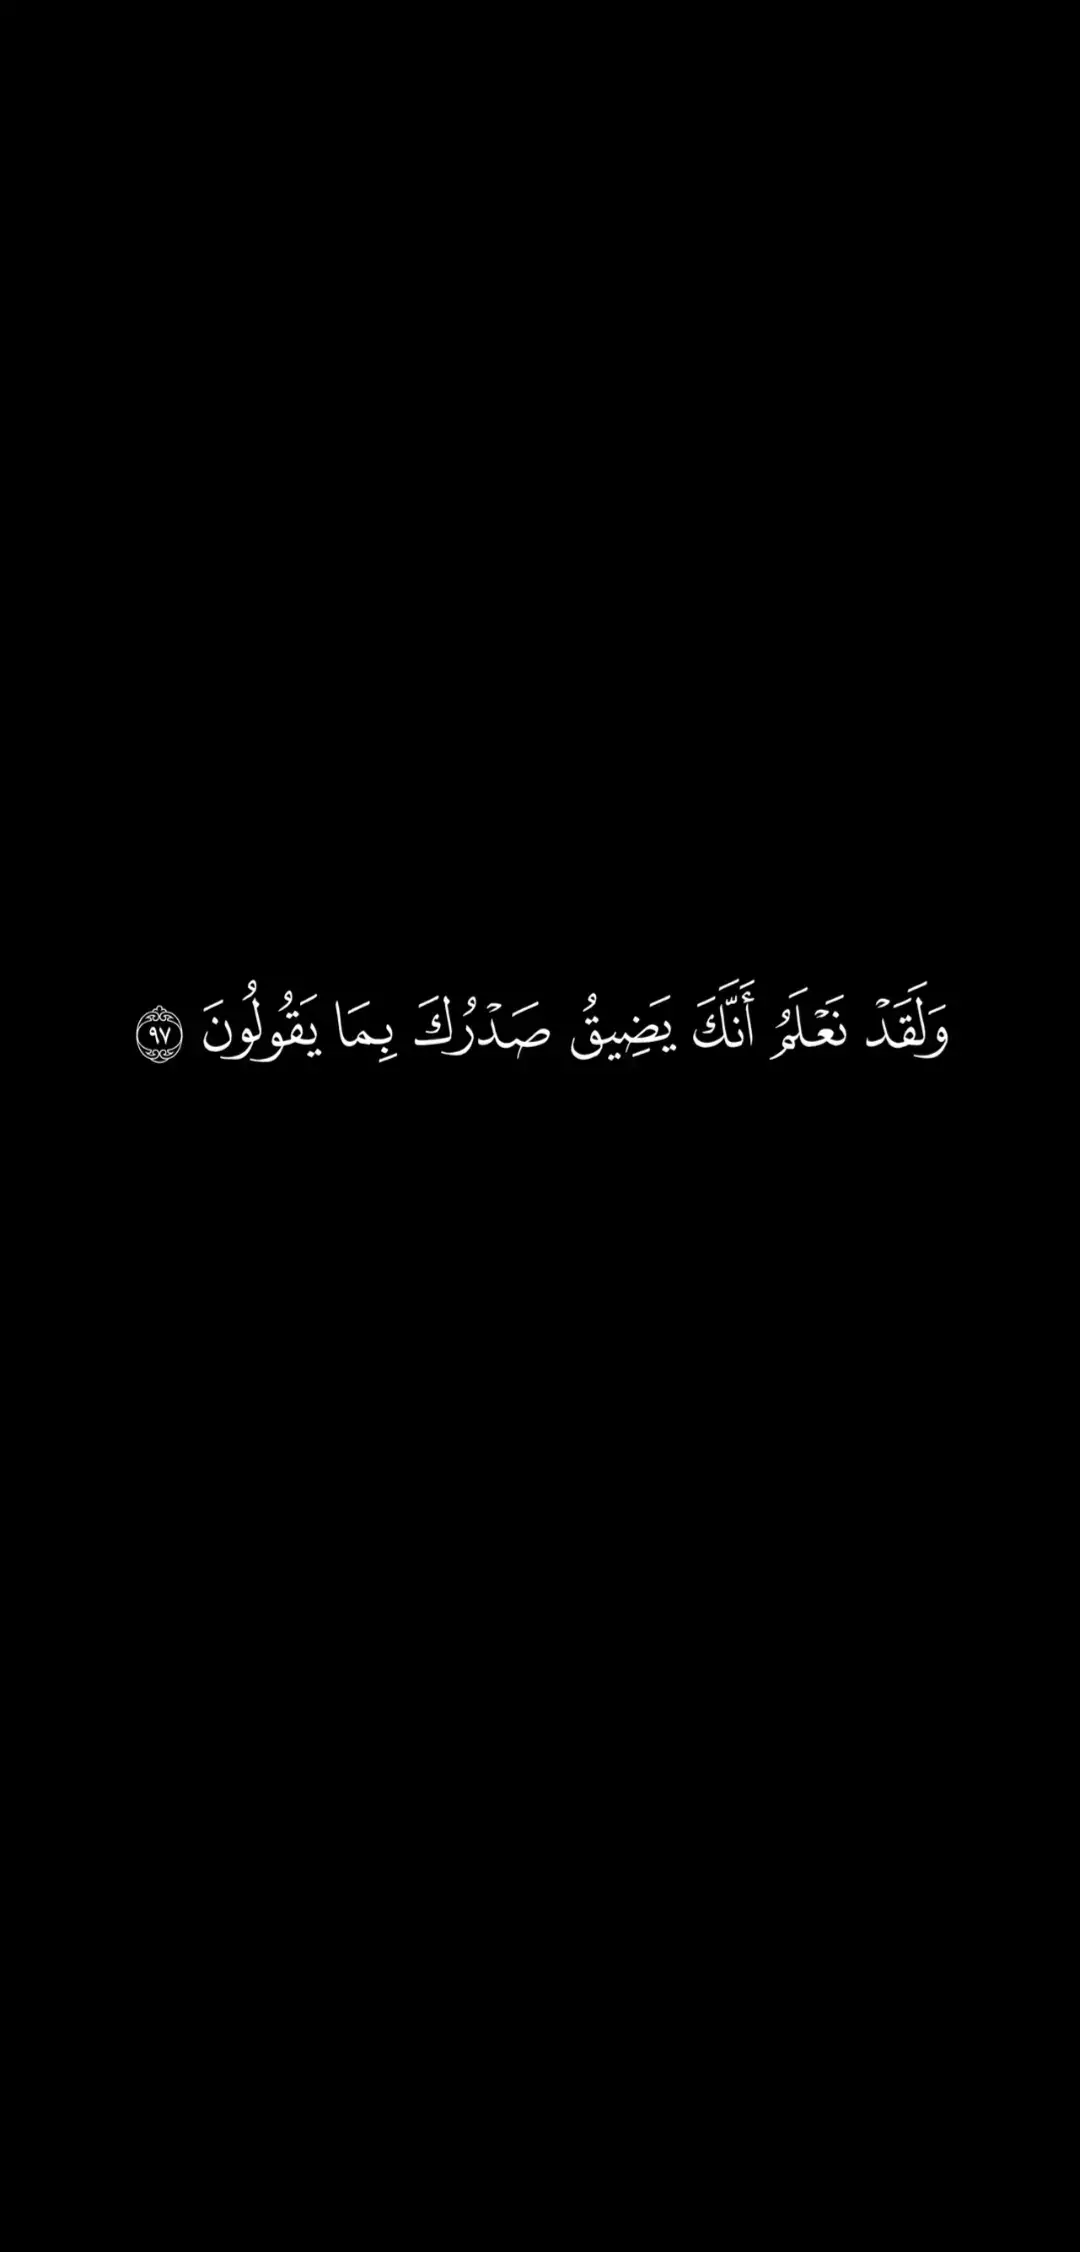 وَلَقَدۡ نَعۡلَمُ أَنَّكَ يَضِيقُ صَدۡرُكَ بِمَا يَقُولُونَ ٩٧